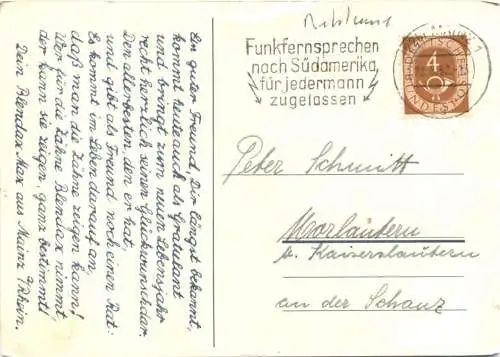 Ein guter Freund, Dir längst bekannt,
kommt heute auch als Gratulant
und bringt zum neuen Lebensjahr
recht herzlich seinen Glückwunsch dar.
Den allerbesten, den er hat,
und gibt als Freund noch einen Rat:
Es kommt im Leben darauf an,
daß man die Zähne zeigen kann!
Wer für die Zähne Blendax nimmt,
der kann sie zeigen, ganz bestimmt!
Dein Blendax Max aus Mainz /Rhein.
Funkfernsprechen
nach Südamerika
für jedermann
zugelassen
DEUTSCHE
BUNDESPOST
4
Peter Schmitt
Morlautern
b. Kaiserslautern
an der Schanz